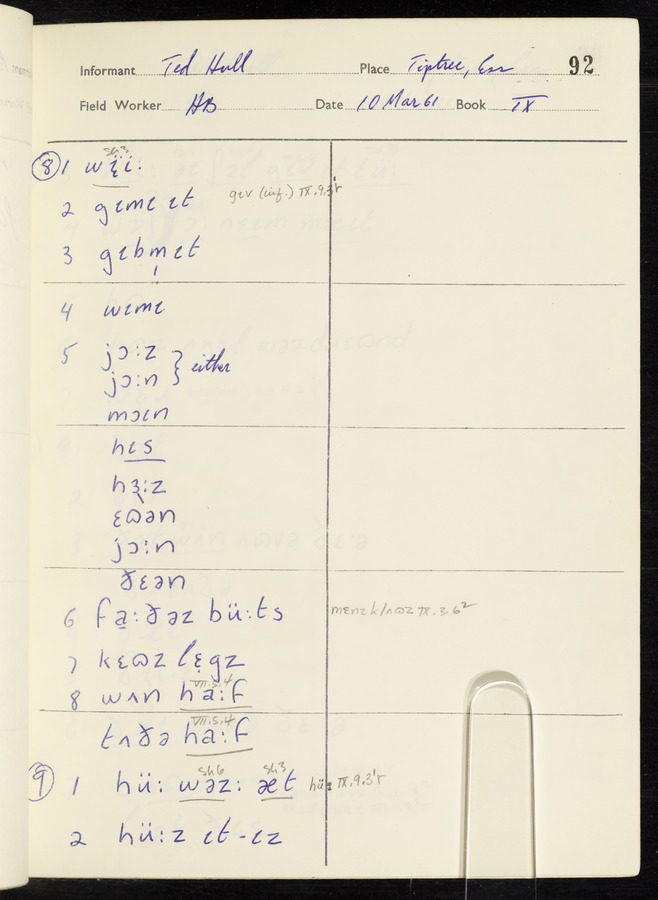 Informant Ted Hull Place Tiptree, Ess 92
Field Worker HB Date 10 Mar 61 Book IX
sh3
⑧ 1 wɛ̈i:
2 gɪmɪ ɪt gɪv (inf.) IX.9.3'r
3 gɪbmɪt
4 wɪmɪ
5 jɔ:z
jɔ:n } either
mɔɪn
hɪs
hɜ:z
ɛɷən
jɔ:n
ðɛən
6 fa̤:ðəz bü:ts mɛnzk/ʌɷz IX.3.6²
7 kɛɷz lɛ̣gz
VII.5.4
8 wʌn ha:f
VII.5.4
tʌðə ha:f
sh6 sh3
⑨ 1 hü: wəz: æt hü: IX.9.3'r
2 hü:z ɪt-ɪz